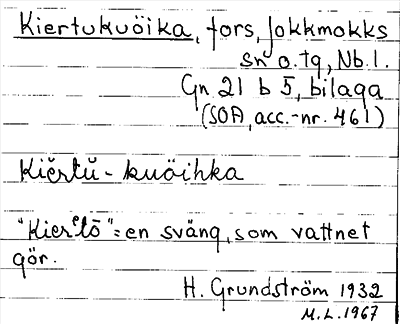 Kiertukuöika, fors, Jokkmokks
sn o. tg, Nb. l.
Gn 21 b 5, bilaga
(SOA, acc.-nr. 461)
Kiĕrtŭ - kuöihka
"Kierᵉtō" = en sväng, som vattnet
gör.
H. Grundström 1932
M.L. 1967